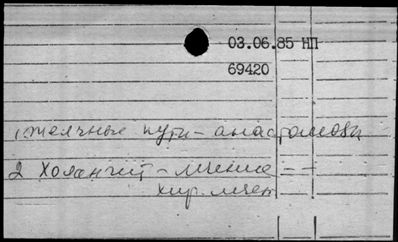 03.06.85 НП
69420
1 желчные пути - анастомозы
2 Холангит - лечение --
хир. лечен